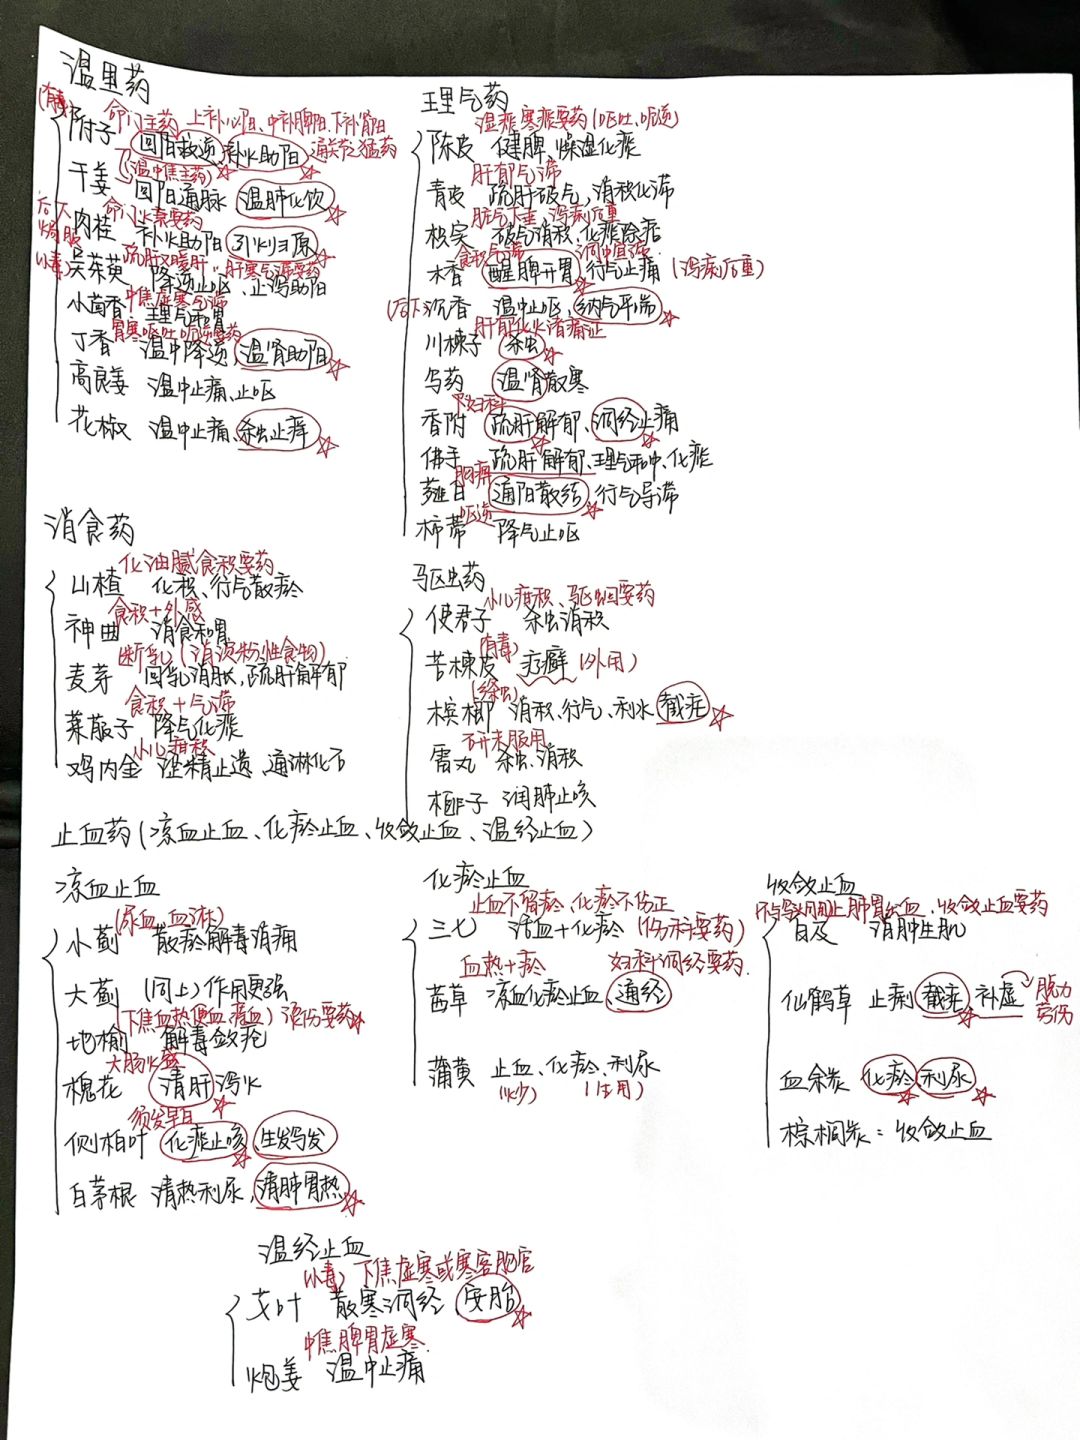 温里药
(有毒)
命门主药 上补心阳、中补脾阳、下补肾阳
附子 回阳救逆、补火助阳 通关节猛药
(温中焦主药)
干姜 回阳通脉 温肺化饮
后下
焗服
命门火衰要药
肉桂 补火助阳 引火归原
(小毒)
疏肝又暖肝,肝寒气滞要药
吴茱萸 降逆止呕、止泻助阳
中焦虚寒气滞
小茴香 理气和胃
胃寒呕吐呃逆要药
丁香 温中降逆,温肾助阳
高良姜 温中止痛、止呕
花椒 温中止痛、杀虫止痒
理气药
湿痰寒痰要药(呕吐、呃逆)
陈皮 健脾、燥湿化痰
肝郁气滞
青皮 疏肝破气,消积化滞
脏气下垂、泻痢后重
枳实 破气消积、化痰除痞
食积气滞
木香 醒脾开胃 行气止痛 (泻痢后重)
(后下)沉香 温中止呕、纳气平喘
肝郁化火诸痛证
川楝子 杀虫
乌药 温肾散寒
妇科
香附 疏肝解郁、调经止痛
佛手 疏肝解郁、理气和中、化痰
胸痹
薤白 通阳散结 行气导滞
呃逆
柿蒂 降气止呕
消食药
化油腻食积要药
山楂 化积、行气散瘀
食积+外感
神曲 消食和胃
断乳(消淀粉性食物)
麦芽 回乳消胀,疏肝解郁
食积+气滞
莱菔子 降气化痰
小儿疳积
鸡内金 涩精止遗、通淋化石
驱虫药
小儿疳积、驱蛔要药
使君子 杀虫消积
(有毒)
苦楝皮 疗癣(外用)
(绦虫)
槟榔 消积、行气、利水 截疟
研末服用
雷丸 杀虫、消积
榧子 润肺止咳
止血药(凉血止血、化瘀止血、收敛止血、温经止血)
凉血止血
(尿血、血淋)
小蓟 散瘀解毒消痈
大蓟 (同上)作用更强
(下焦血热便血痔血)烫伤要药
地榆 解毒敛疮
大肠火盛
槐花 清肝泻火
须发早白
侧柏叶 化痰止咳、生发乌发
白茅根 清热利尿,清肺胃热
化瘀止血
止血不留瘀、化瘀不伤正
三七 活血+化瘀 (伤科要药)
血热+瘀 妇科调经要药
茜草 凉血化瘀止血、通经
蒲黄 止血、化瘀、利尿
(炒) (生用)
收敛止血
止肺胃出血、收敛止血要药
白及 消肿生肌
仙鹤草 止痢 截疟、补虚 脱力
劳伤
血余炭 化瘀 利尿
棕榈炭:收敛止血
温经止血
(小毒) 下焦虚寒或寒客胞宫
艾叶 散寒调经 安胎
中焦脾胃虚寒
炮姜 温中止痛